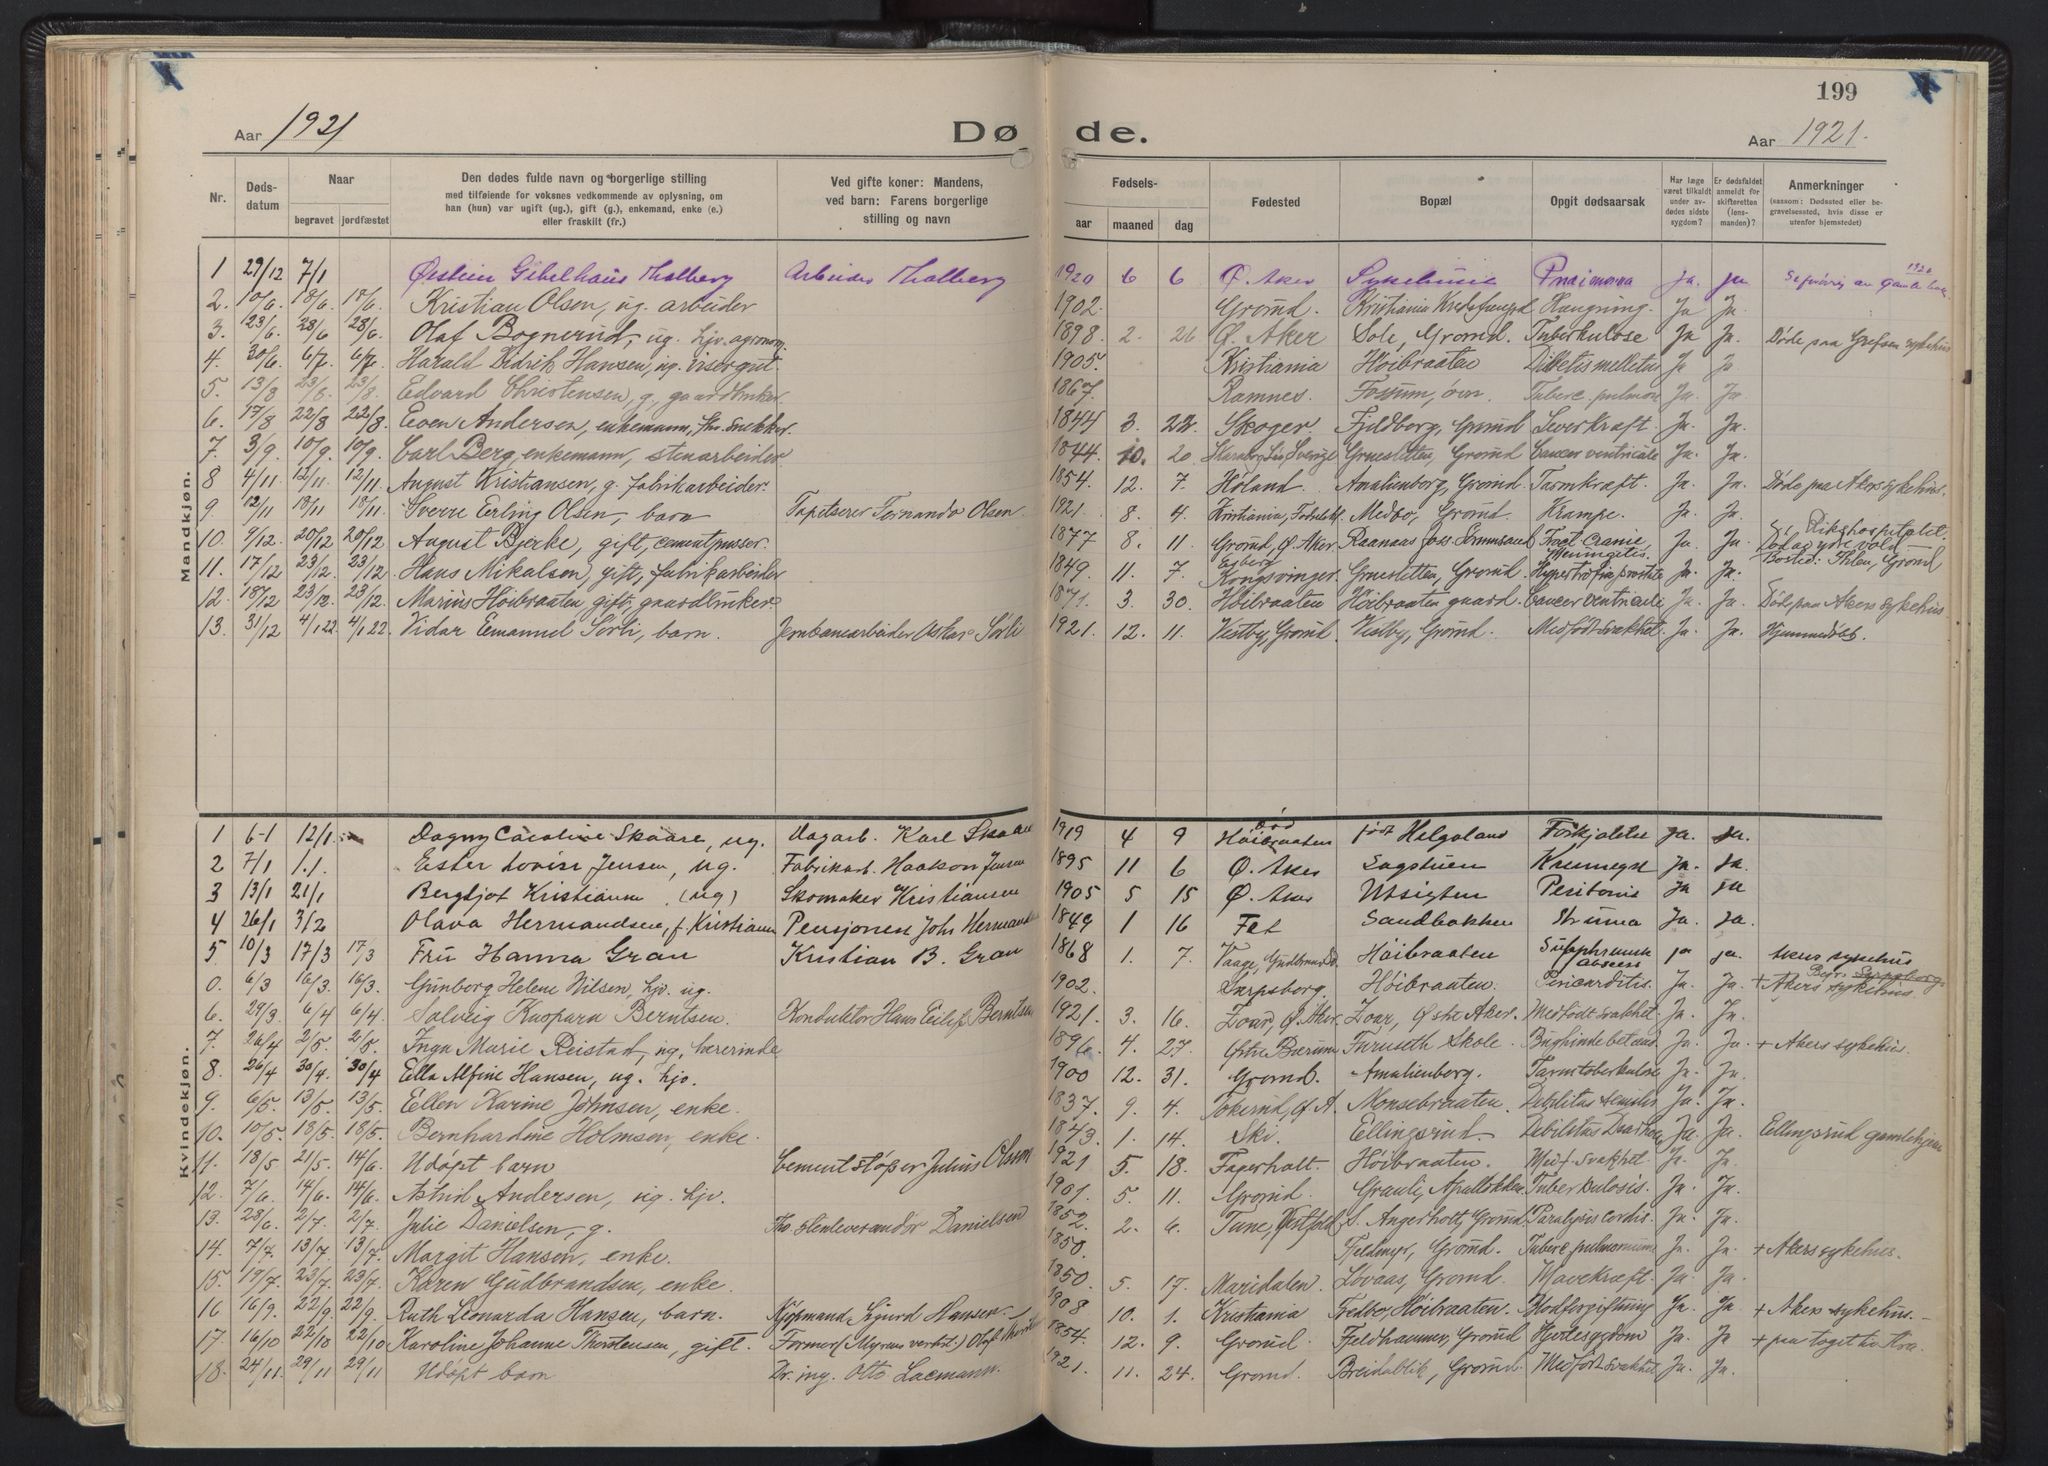 199
Aar 1921
Døde.
Aar 1921.
Nr. Døds-datum Naar begravet jordfæstet Den dødes fulde navn og borgerlige stilling med tilføiende for voksnes vedkommende av oplysning, om han (hun) var ugift (ug.), gift (g.), enkemand, enke (e.) eller fraskilt (fr.) Ved gifte koner: Mandens, ved barn: Farens borgerlige stilling og navn Fødsels- aar maaned dag Fødested Bopæl Opgit dødsaarsak Har læge været tilkaldt under av-dødes sidste sygdom? Er dødsfaldet anmeldt for skifteretten (lens-manden)? Anmerkninger (saasom: Dødssted eller be-gravelsessted, hvis disse er utenfor hjemstedet)
Mandkjøn.
1 29/12 7/1 Thalberg Arbeider Thalberg 1920 6 6 Ø. Aker Ja. ja 1920
2. 10/6. 18/6. 18/6. Kristian Olsen, ug. arbeider 1902. Grorud. Kristiania Hængning. Ja Ja.
3. 23/6. 28/6 28/6. Olaf Bognerud, ug. hjv. agronom. 1898. 2. 26 Ø. Aker Sole, Grorud. Tuberkulose Ja Ja. Døde paa Grefsen sykehus
4. 30/6 6/7. 6/7. Harald Didrik Hansen, ug. visergut. 1905. Kristiania Høibraaten Ja Ja
5. 13/8 23/8. 23/8. Edvard Christensen, g., gaardbruker. 1867. Ramnes. Fossum, Tuberc. pulmon Ja. Ja.
6. 17/8 22/8 22/8. Even Andersen, enkemann, fhv. snekker. 1844 3. 22. Skoger Fjeldborg, Grorud Leverkræft. Ja. Ja.
7. 3/9. 10/9. 10/9. Carl Berg, enkemann, stenarbeider 1844. 10. 20 Sverige Gruesletten, Grorud Cancer ventriculi Ja. Ja.
8 4/11. 12/11. 12/11. August Kristiansen, g. fabrikarbeider. 1854. 12. 7. Høland. Amalienborg, Grorud. Tarmkræft. Ja. Ja. Døde paa Akers sykehus.
9. 12/11 18/11 18/11. Sverre Erling Olsen, barn Tapitserer Fernando Olsen. 1921. 8. 4. Kristiania, Medbo, Grorud. Krampe. Ja. Ja.
10. 9/12. 20/12 20/12 August Bjerke, gift, cementpusser. 1877 8. 11 Grorud, Ø. Aker. Raanaas Fract. Cranie, Meningitis. Ja. Ja. Rikshospitalet.
11. 17/12 23/12. 23/12 Hans Mikalsen, gift, fabrikarbeider 1849. 11. 7. Kongsvinger. Gruesletten, Grorud. Ja. Ja. Bosted: Grorud
12. 18/12 23/12 23/12. Marius Høibraaten, gift, gaardbruker 1871. 3. 30. Høibraaten Høibraaten gaard. Cancer ventriculi Ja. Ja. Døde paa Akers sykehus
13. 31/12 4/1 22. 4/1 22. Vidar Emanuel Sørli, barn. Jernbanearbeider Oskar Sørli 1921. 12. 11. Vestby, Grorud. Vestby, Grorud. Medfødt svakhet. Ja. Ja. Hjemmedøbt.
Kvindekjøn.
1 6-1 12/1 Dagny Caroline Skaare, ug. Karl Skaare 1919 4 9 Høibraaten Helgoland Forkjølelse ja. ja.
2 7/1 Ester Lovise Jensen, ug. Fabrikarb. Haakon Jensen 1895 11 6 Ø. Aker Sagstuen Ja. ja.
3 13/1 21/1 Bergljot Kristiansen (ug) Skomaker Kristiansen 1905 5 15 Ø. Aker Utsigten Peritonit ja ja
4 26/1 3/2 Olava Hermandsen, f. Kristiansen Pensjonert Johs Hermandsen 1849 1 16 Fet Sandbakken Struma Ja. ja.
5 10/3 17/3 17/3 Fru Hanna Gran Kristian B. Gran 1868 1. 7. Vaage, Gudbrandsd. Høibraaten abscess ja ja. Akers sykehus
0. 6/3 16/3. 16/3. Gunborg Helene Nilsen, hjv. ug. 1902. Sarpsborg. Høibraaten. Pericarditis. Ja. Ja. + Akers sykehus. Begr. Sarpsborg
6. 29/3 6/4 6/4 Solveig Kaspara Berntsen. Konduktør Hans Eilif Berntsen 1921. 3. 16. Zoar, Ø. Aker. Zoar, Østre Aker. Medfødt svakhet. Ja. Ja.
7. 26/4 2/5. 2/5. Inga Marie Reistad, ug., lærerinde 1896. 4. 27. Østre Bærum Furuseth Skole. Bughindebetænd. Ja. Ja. + Akers sykehus.
8. 26/4 30/4. 30/4 Ella Alfine Hansen, ug. hjv. 1900 12. 31. Grorud. Amalienborg. Tarmtuberkulose Ja. Ja.
9. 6/5. 13/5. 13/5. Ellen Karine Johnsen, enke. 1837. 9. 4. Tokerud, Ø. A. Monsebraaten. Debilitas senilis Ja. Ja.
10. 10/5. 18/5. 18/5. Bernhardine Holmsen, enke. 1843. 1. 14. Ski. Ellingsrud. Debilitas Ja. Ja. Ellingsrud gamlehjem
11. 18/5 21/5. 14/6. Udøpt barn Cementstøper Julius Olsen 1921 5. 18. Fagerholt. Høibraaten. Medf. svakhet. Ja. Ja.
12. 7/6. 14/6. 14/6. Astrid Andersen, ug. hjv. 1901. 5. 11. Grorud. Tuberkulosis. Ja. Ja.
13. 28/6. 2/7. 2/7. Julie Danielsen, g. Stenleverandør Danielsen 1852. 2. 6. Tune, Østfold S. Angerholt, Grorud. Paralysis cordis. Ja. Ja.
14. 7/7. 13/7 13/7. Margit Hansen, enke. 1850. Fjeldmyr, Grorud. Tuberc. pulmonum Ja. Ja. + Akers sykehus.
15. 17/7. 23/7. 23/7. Karen Gudbrandsen, enke. 1850. 5. 17. Maridalen. Lovaas, Grorud. Mavekræft. Ja. Ja.
16 16/9. 22/9. 22/9. Ruth Leonarda Hansen, barn. Kjøpmand Sigurd Hansen. 1908 10. 1. Kristiania Fredbo, Høibraaten. Blodforgiftning Ja. Ja + Akers sykehus.
17. 16/10 22/10 22/10 Karoline Johanne Thorstensen, gift. Former (Myrens verkst.) Olaf 1854. 12. 9. Grorud. Fjeldhammer, Grorud Hjertesygdom Ja. Ja + paa toget til Kra.
18. 24/11. 29/11 29/11 Udøpt barn Dr. ing. Otto Lacmann. 1921. 11. 24. Grorud. Breidablik, Grorud. Medfødt svakhet Ja. Ja.